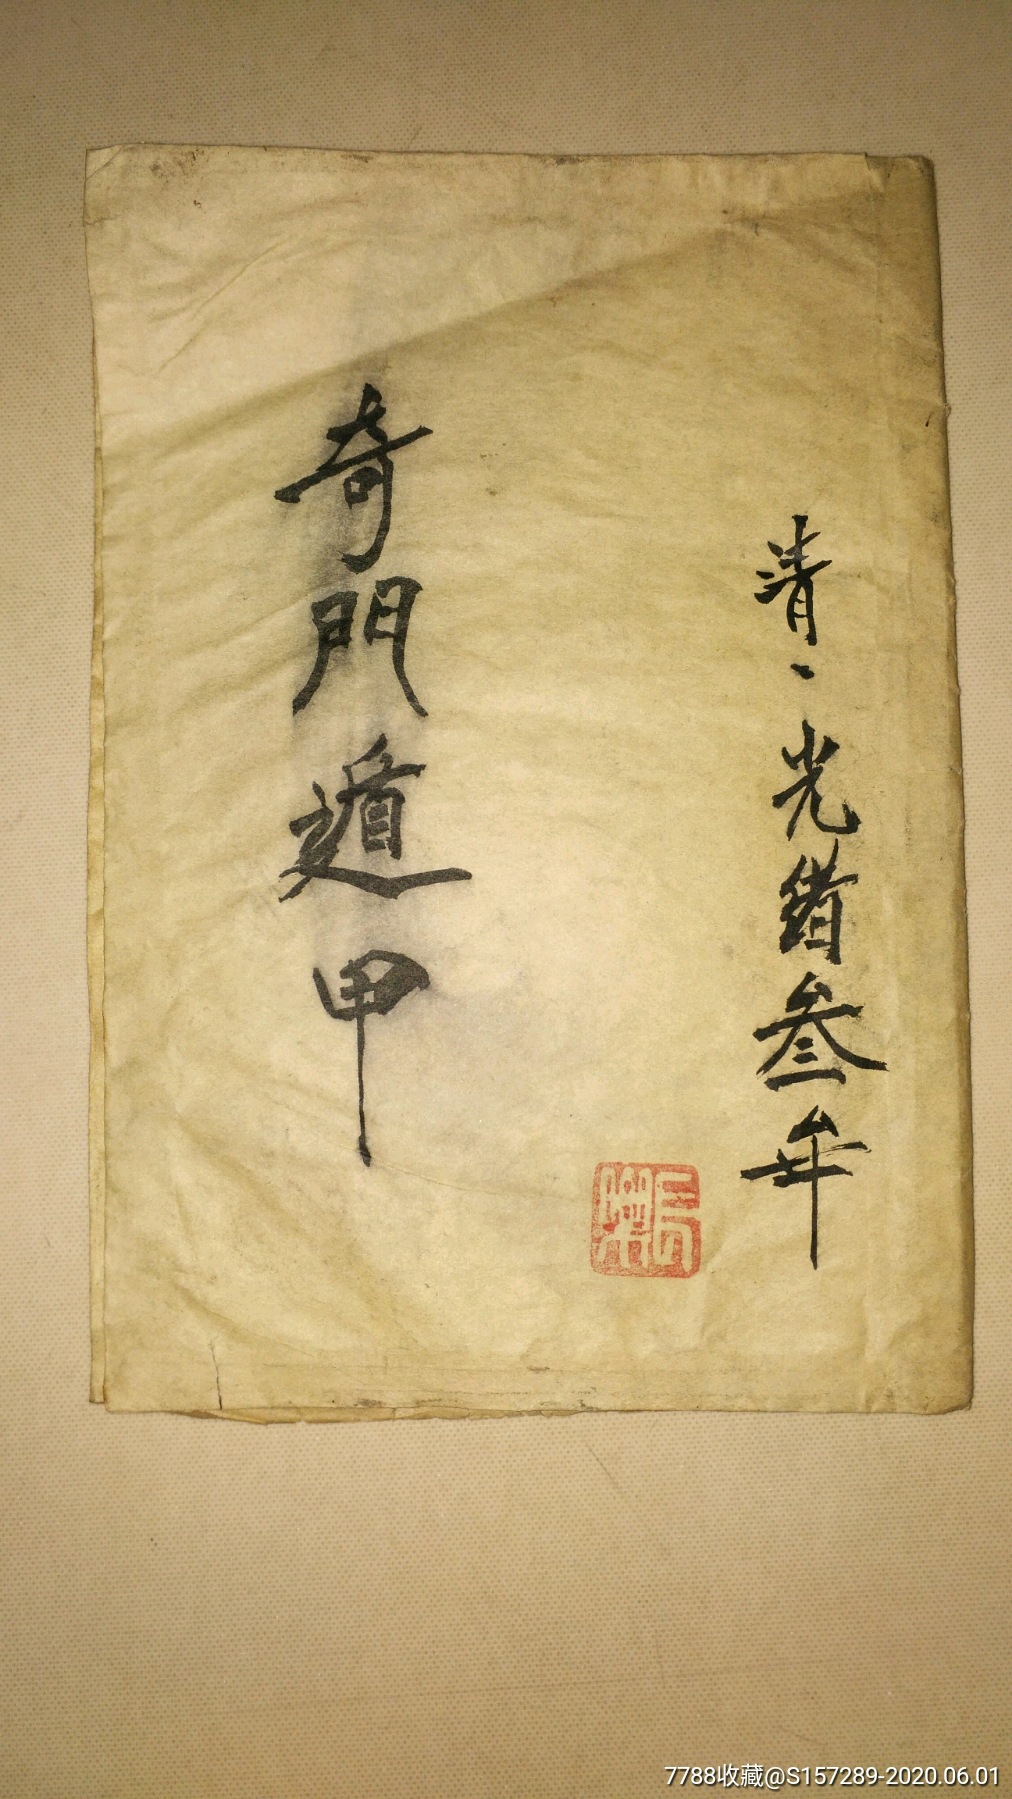 清、光绪叁年
奇門遁甲
7788收藏@S157289-2020.06.01